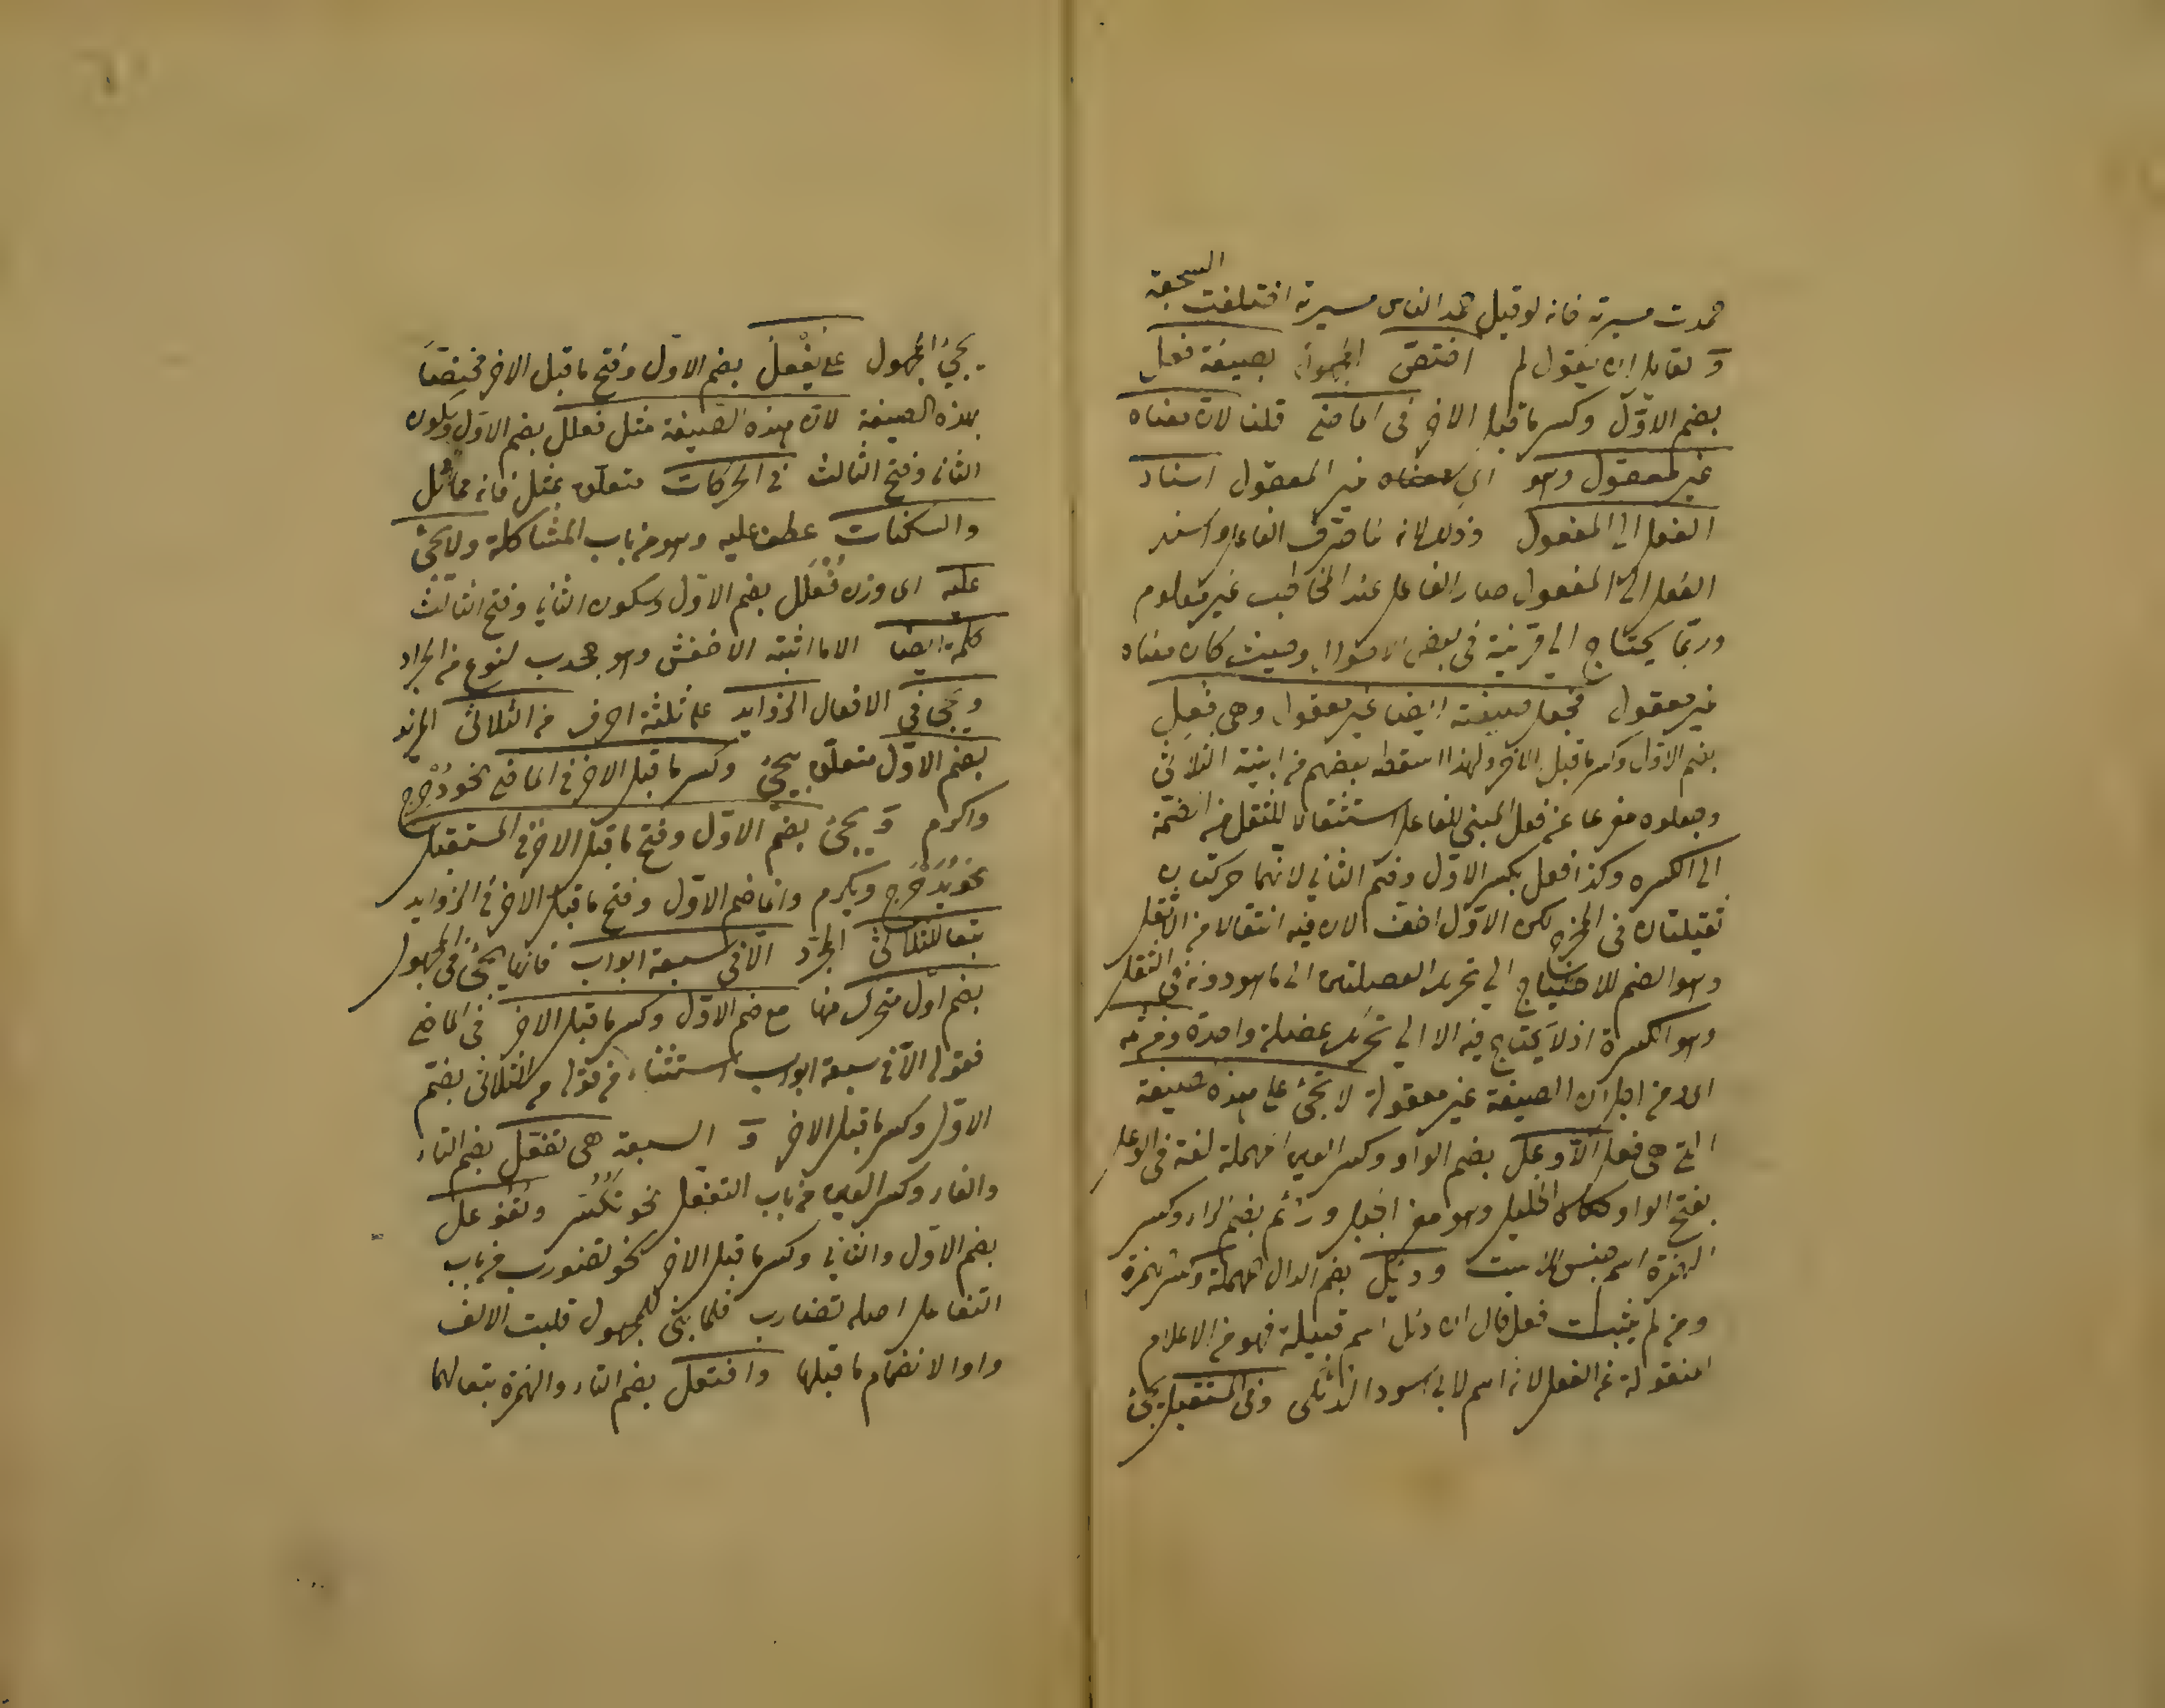 السجعة
حمدت سيرته فانه لو قيل حمد الناس سيرته اختلفت
و لقايل ان يقول لم اختص المجهول بصيغة فعل
بضم الاوّل وكسر ما قبل الاخر فى الماضى قلنا لان معناه
غير المعقول وهو اى معناه غير المعقول اسناد
الفعل الى المفعول وذلك لانه لما حذف الفاعل واسند
الفعل الى المفعول صار الفاعل عند المخاطب غير معلوم
وربّما يحتاج الى قرينة فى بعض الاحوال وحيث كان معناه
غير معقول فجعل صيغته ايضا غير معقول وهى فُعِل
بضم الاول وكسر ما قبل الاخر ولهذا اسقطه بعضهم من ابنية الثلاثى
وجعلوه مفرعا عن فعل المبنى للفاعل استثقالا للنقل من الضمّة
الى الكسرة وكذا فعل بكسر الاوّل وضم الثانى لانهما حركتان
ثقيلتان فى المخرج لكن الاوّل اخف لان فيه انتقالا من الاثقل
وهو الضم للاحتياج الى تحريك العضلتين الى ما هو دونه فى الثقل
وهو الكسرة اذ لا يحتاج فيه الا الى تحريك عضلة واحدة ومن ثمه
اى ومن اجل ان الصيغة غير معقولة لا تجئ على هذه صيغة
التى هى فعل الّا وعل بضم الواو وكسر العين المهملة لغة فى الوعل
بفتح الواو الخليل وهو معز الجبل ورئم بضم الراء وكسر
الهمزة اسم جنس للاست ودئل بضم الدال المهملة وكسر الهمزة
ومن لم يثبت فعل قال ان دئل اسم قبيلة فهو من الاعلام
المنقولة عن الفعل لانه اسم لابى اسود الدئلى وفى المستقبل يجئ
يجئ المجهول على يُفْعَل بضم الاوّل وفتح ما قبل الاخر مختصا
بهذه الصيغة لان هذه الصيغة مثل فعلل بضم الاوّل وسكون
الثانى وفتح الثالث فى الحركات متعلق بمثل فانه مماثل
والسكنات عطف عليه وهو من باب المشاكلة ولا يجئ
عليه اى وزن فُعْلَل بضم الاوّل وسكون الثانى وفتح الثالث
كلمة ايضا الا ما اثبته الاخفش وهو جحدب لنوع من الجراد
ويجئ فى الافعال الزوايد على ثلثة احرف من الثلاثى المزيد
بضم الاوّل متعلق بيجئ وكسر ما قبل الاخر فى الماضى نحو دُحْرِج
واكرم و يجئ بضم الاوّل وفتح ما قبل الاخر فى المستقبل
نحو يُدَحْرَج ويكرم وانما ضم الاوّل وفتح ما قبل الاخر فى الزوايد
تبعا للثلاثى المجرّد الّا فى سبعة ابواب فانها يجئ فى المجهول
بضم اوّل متحرك منها مع ضم الاوّل وكسر ما قبل الاخر فى الماضى
فقوله الّا فى سبعة ابواب استثناء من قوله من الثلاثى بضم
الاوّل وكسر ما قبل الاخر و السبعة هى تفعّل بضم التاء
والفاء وكسر العين من باب التفعّل نحو تُكُسِّر وتفوعل
بضم الاوّل والثانى وكسر ما قبل الاخر نحو تضورب من باب
التفاعل اصله تضارب فلما بنى للمجهول قلبت الالف
واوا لانضمام ما قبلها وافتعل بضم التاء والهمزة تبعا لهما